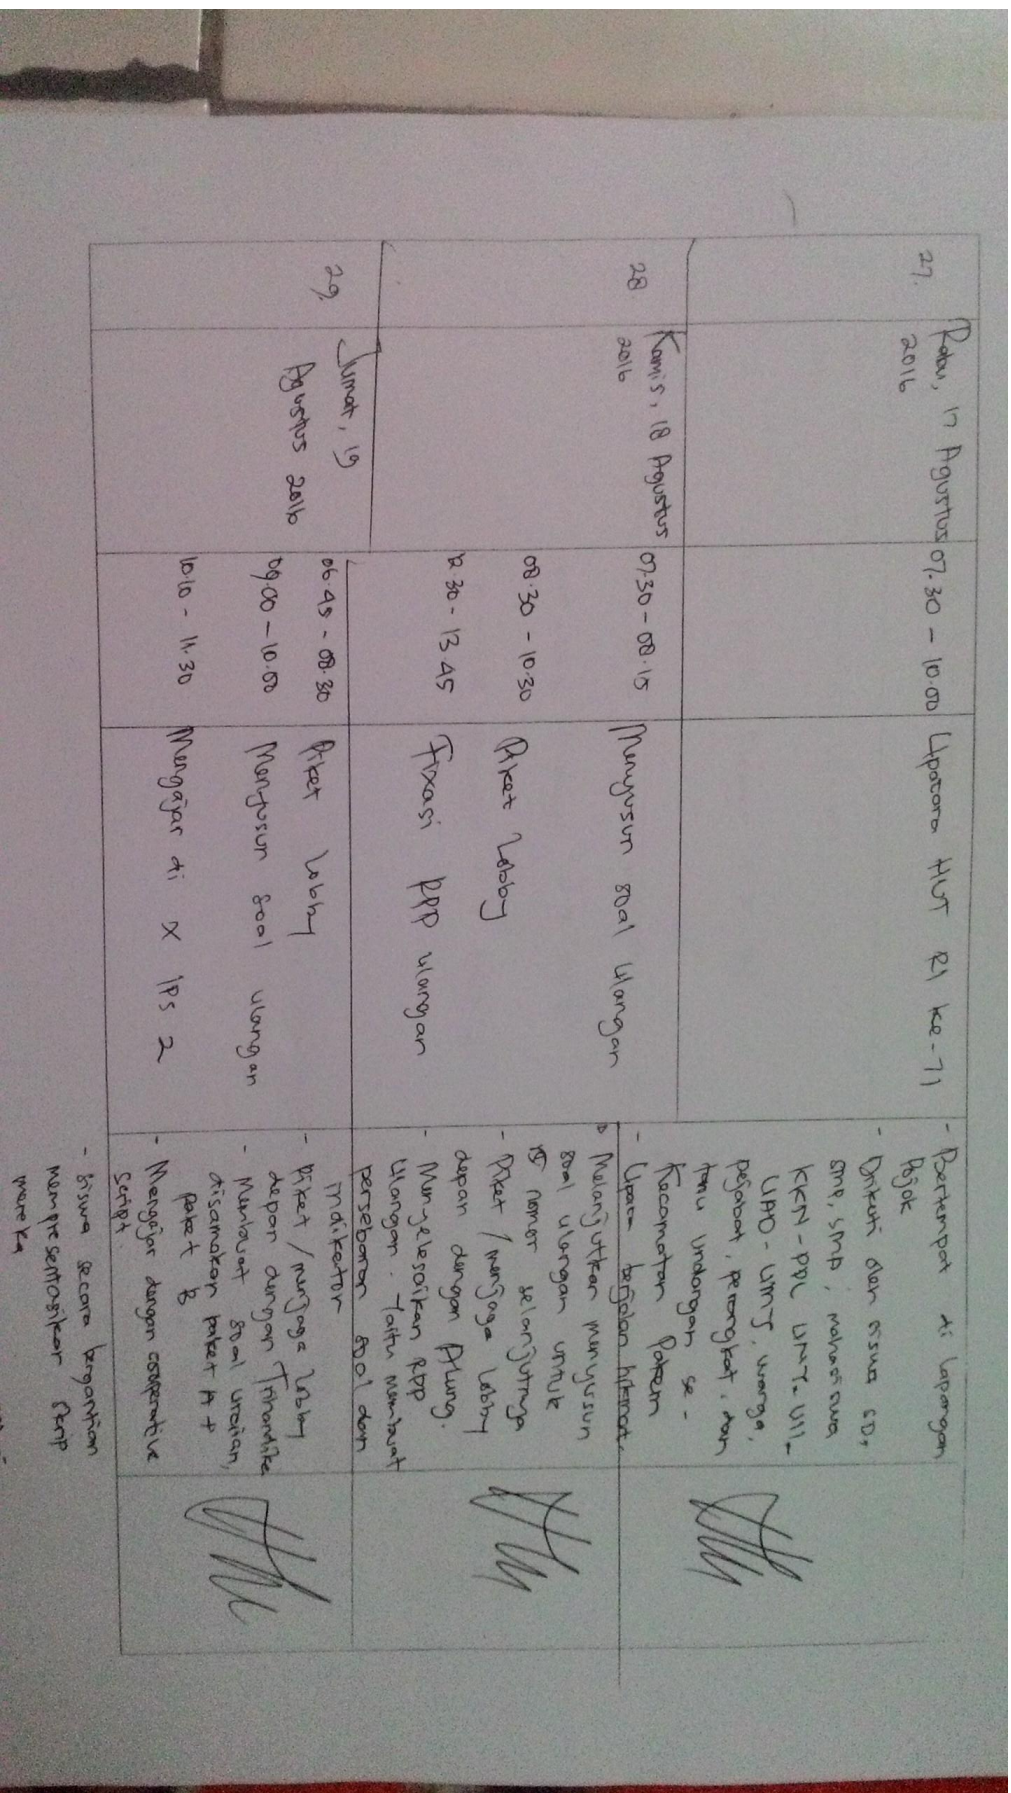 27.
Rabu, 17 Agustus
2016
07.30 - 10.00
Upacara HUT RI ke-71
- Bertempat di Lapangan
Pojok
- Diikuti oleh siswa SD,
SMP, SMA, mahasiswa
KKN-PPL UNY-UII-
UAD-UMY, warga,
pejabat, perangkat, dan
tamu undangan se-
Kecamatan Pakem
- Upacara berjalan hikmat.
28
Kamis, 18 Agustus
2016
07.30 - 08.15
Menyusun soal ulangan
Melanjutkan menyusun
soal ulangan untuk
nomor selanjutnya
08.30 - 10.30
Piket Lobby
- Piket / menjaga lobby
depan dengan Alung.
12.30 - 13.45
Fixasi RPP ulangan
- Menyelesaikan RPP
Ulangan. Yaitu membuat
persebaran soal dan
indikator
29.
Jumat, 19
Agustus 2016
06.45 - 08.30
Piket Lobby
- Piket / menjaga Lobby
depan dengan Trihandika
09.00 - 10.00
Menyusun soal ulangan
- Membuat soal uraian,
disamakan paket A +
paket B
10.10 - 11.30
Mengajar di X IPS 2
- Mengajar dengan cooperative
script.
- Siswa secara bergantian
mempresentasikan skrip
mereka